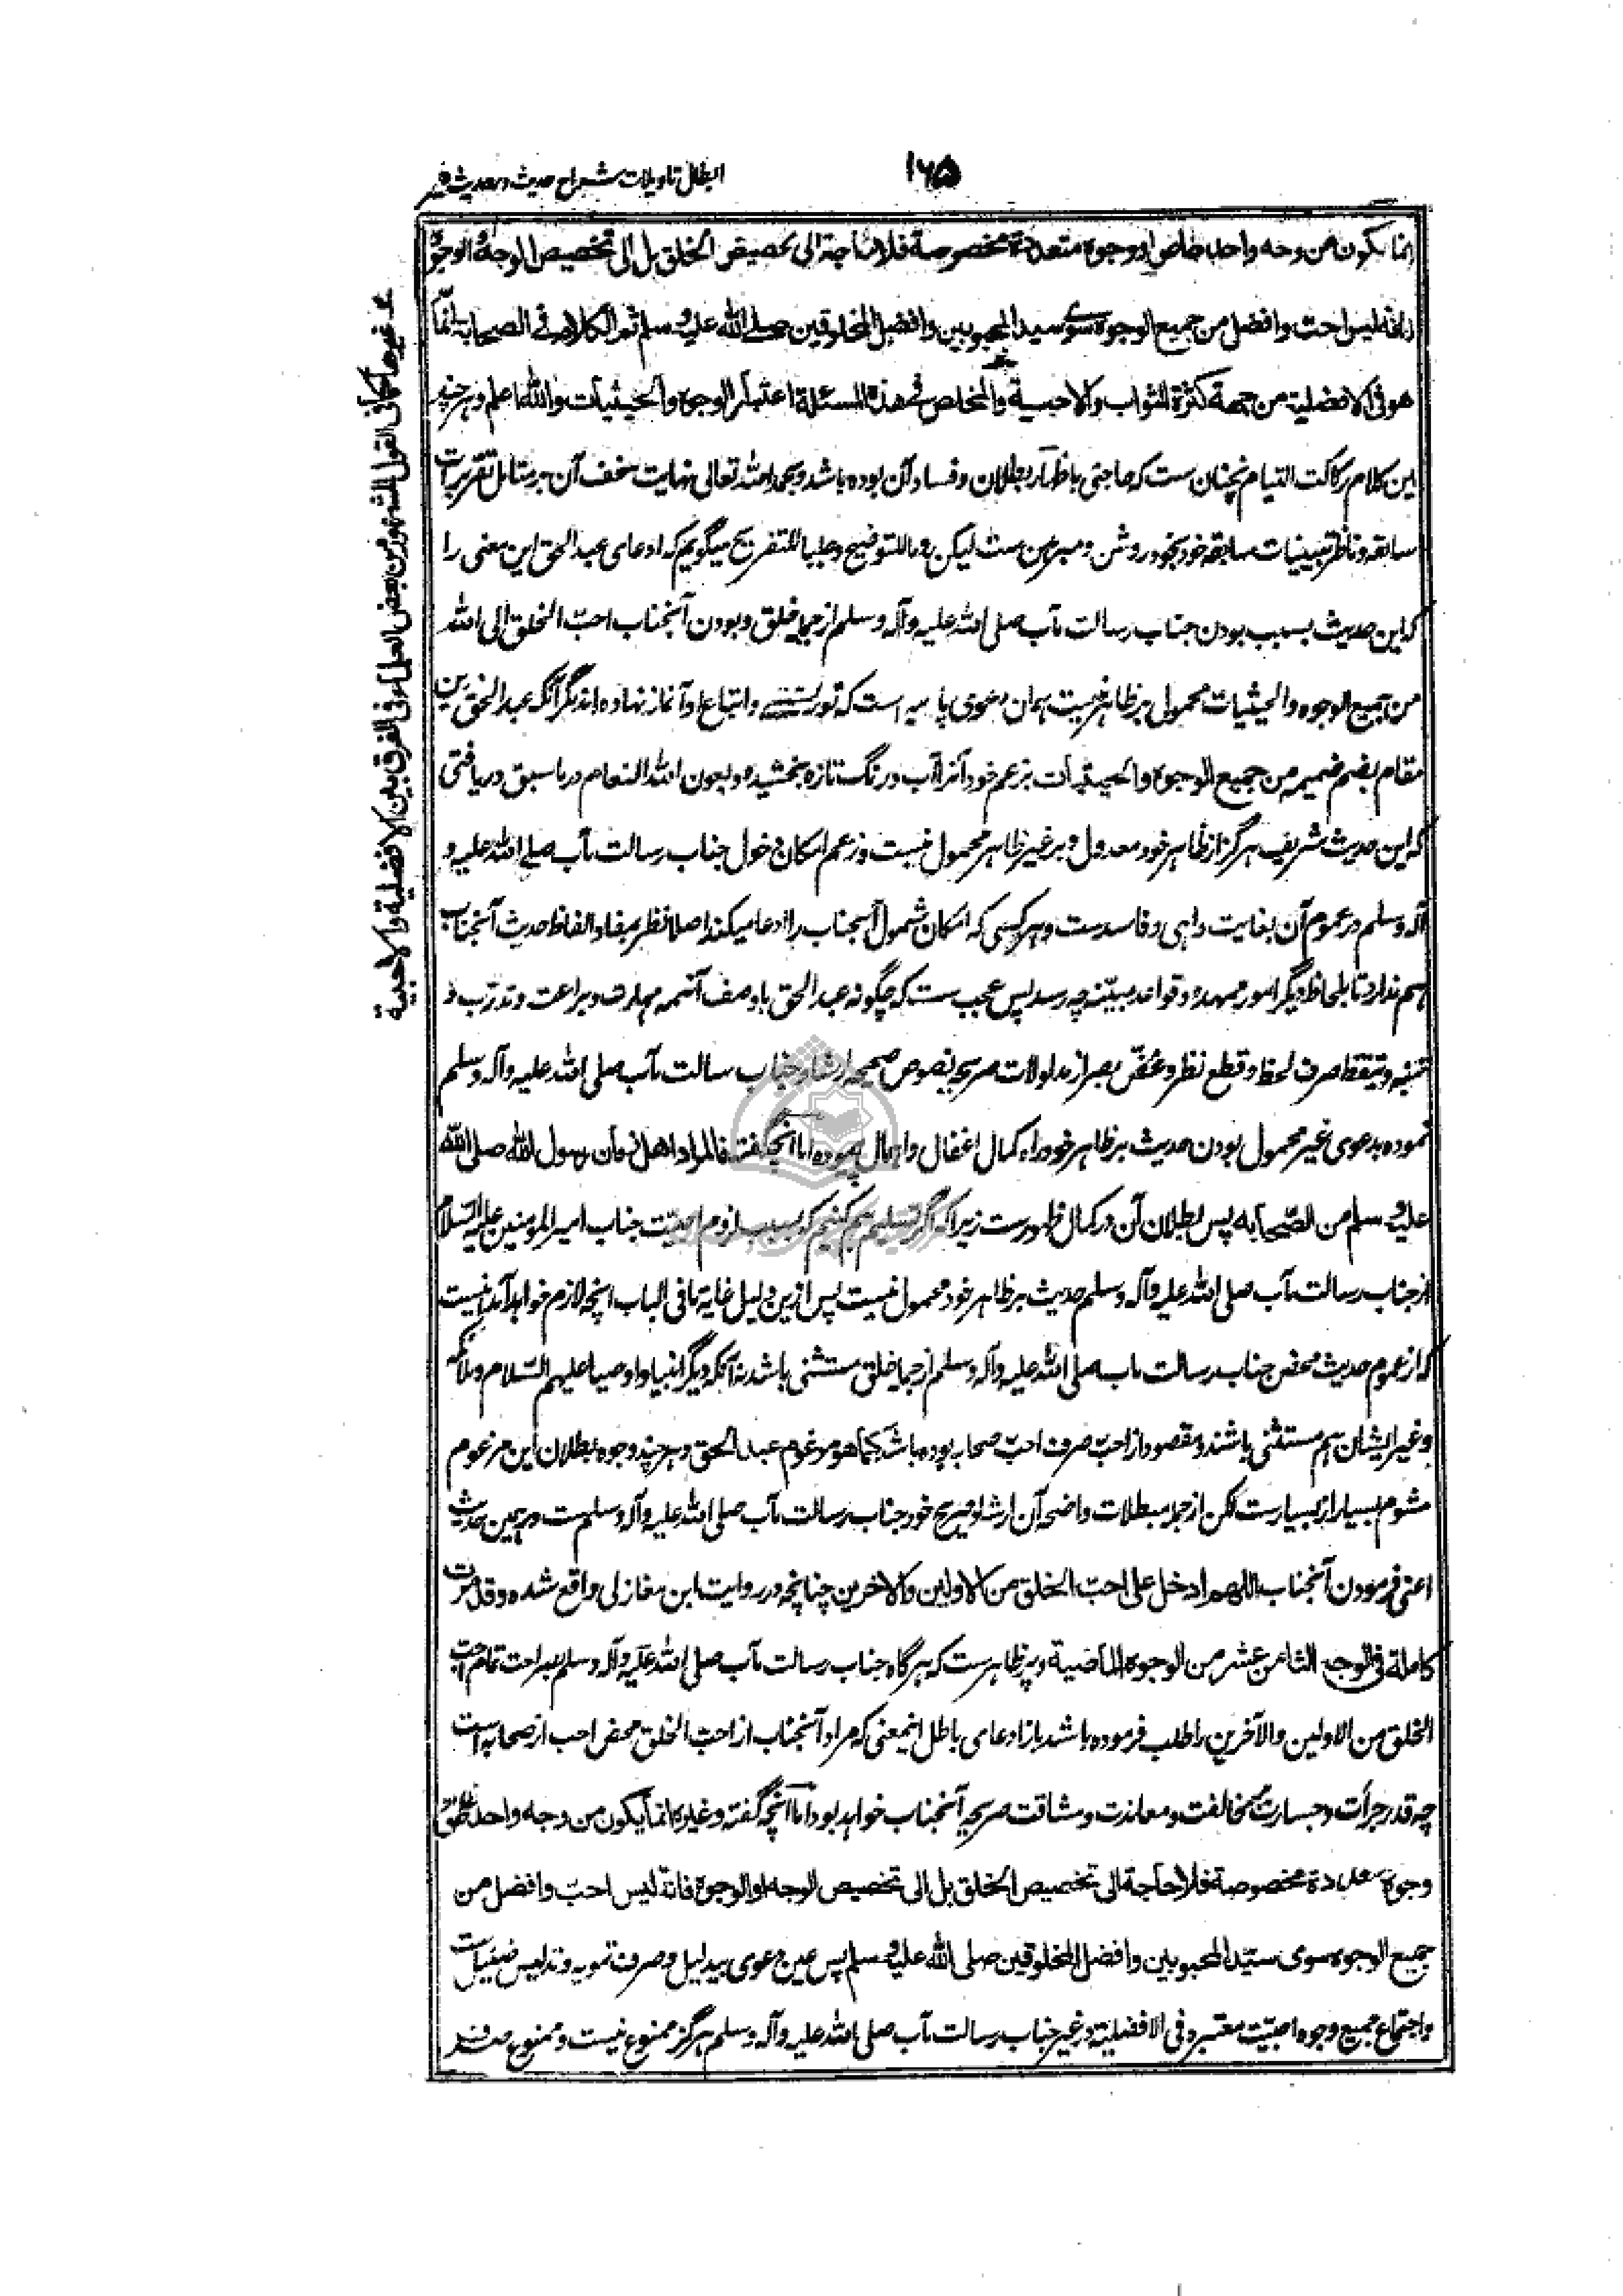 ۱۶۵
ابطال تاویلات شراح حدیث در حدیث طیر
انما یکون من وجه واحد خاص او وجوه متعددة مخصوصة فلا حاجة الی تخصیص الخلق بل الی تخصیص الوجه او الوجوه
فانه لیس احب وافضل من جمیع الوجوه سوی سید المحبوبین وافضل المخلوقین صلی الله علیه وسلم ثم الکلام فی الصحابة انما
هو فی الافضلیة من جهة کثرة الثواب والاحبیة والمخلص فی هذه المسئلة اعتبار الوجوه والحیثیات والله اعلم و هر چند
این کلام رکاکت التیام نچنان ست که حاجتی باظهار بطلان و فساد آن بوده باشد و بحمد الله تعالی نهایت سخف آن بر متامل تقریرات
سابقه و ناظر تبیینات سابقه خود بخود روشن و مبرهن ست لیکن روما للتوضیح وجلبا للتفریح میگویم که ادعای عبد الحق این معنی را
که این حدیث بسبب بودن جناب رسالت مآب صلی الله علیه وآله وسلم از جمله خلق و بودن آنجناب احب الخلق الی الله
من جمیع الوجوه والحیثیات محمول بر ظاهر نیست همان دعوی پا در است که تورپشتی واتباع او آغاز نهاده اند مگر آنکه عبد الحق درین
مقام بضم ضمیمه من جمیع الوجوه والحیثیات بزعم خود آنرا آب و رنگ تازه بخشیده و بعون الله المنعام در ما سبق دریافتی
که این حدیث شریف هرگز از ظاهر خود معدول و بر غیر ظاهر محمول نیست و زعم امکان دخول جناب رسالت مآب صلی الله علیه و
آله وسلم در عموم آن بغایت واهی و فاسدست و هر کسی که امکان شمول آنجناب را ادعا میکند اصلا نظر بمفاد الفاظ حدیث آنجناب
هم ندارد تا بلحاظ دیگر امور ممهده و قواعد مبینه چه رسد پس عجب ست که چگونه عبد الحق با وصف آنهمه مهارت و براعت و تدرب و
تنبه و تیقظ صرف لحظ و قطع نظر و غض بصر از مدلولات صریحه نصوص صحیحه ارشاد جناب رسالت مآب صلی الله علیه وآله وسلم
نموده بدعوی غیر محمول بودن حدیث بر ظاهر خود راه کمال اغفال و اهمال پیموده اما آنچه گفته فالمراد اهل زمان رسول الله صلی الله
علیه وسلم من الصحابة پس بطلان آن در کمال ظهورست زیرا که اگر تسلیم هم کنیم که بسبب لزوم احبیت جناب امیر المومنین علیه السلام
از جناب رسالت مآب صلی الله علیه وآله وسلم حدیث بر ظاهر خود محمول نیست پس ازین دلیل غایة ما فی الباب آنچه لازم خواهد آمد اینست
که از عموم حدیث محض جناب رسالت مآب صلی الله علیه وآله وسلم از جمله خلق مستثنی باشد نه آنکه دیگر انبیا و اوصیا علیهم السلام و ملائکه
و غیر ایشان هم مستثنی باشند و مقصود از احب صرف احب صحابه بوده باشد کما هو مزعوم عبد الحق و هر چند وجوه بطلان این مزعوم
مشوم بسیار از بسیارست لکن از جمله مبطلات واضحه آن ارشاد صریح خود جناب رسالت مآب صلی الله علیه وآله وسلم ست در همین حدیث
اعنی فرمودن آنجناب اللهم ادخل علی احب الخلق من الاولین والاخرین چنانچه در روایت ابن مغازلی واقع شده وقد مرت
کاملة فی الوجه الثامن عشر من الوجوه الماضیة و پر ظاهرست که هرگاه جناب رسالت مآب صلی الله علیه وآله وسلم بصراحت تمام احب
الخلق من الاولین والآخرین را طلب فرموده باشد باز ادعای باطل اینمعنی که مراد آنجناب از احب الخلق محض احب از صحابه است
چه قدر جرأت و جسارت و مخالفت و معاندت و مشاقت صریحه آنجناب خواهد بود اما آنچه گفته وغیره انما یکون من وجه واحد خاص او
وجوه متعددة مخصوصة فلا حاجة الی تخصیص الخلق بل الی تخصیص الوجه او الوجوه فانه لیس احب وافضل من
جمیع الوجوه سوی سید المحبوبین وافضل المخلوقین صلی الله علیه وسلم پس عین دعوی بیدلیل و صرف تمویه و تدلیس ضئیل است
و اجتماع جمیع وجوه احبیت معتبره فی الافضلیة در غیر جناب رسالت مآب صلی الله علیه وآله وسلم هرگز ممنوع نیست و ممنوع صرف
غیرها کما فی القول المشهور من بعض العلماء فی الفرق بین الافضلیة والاحبیة